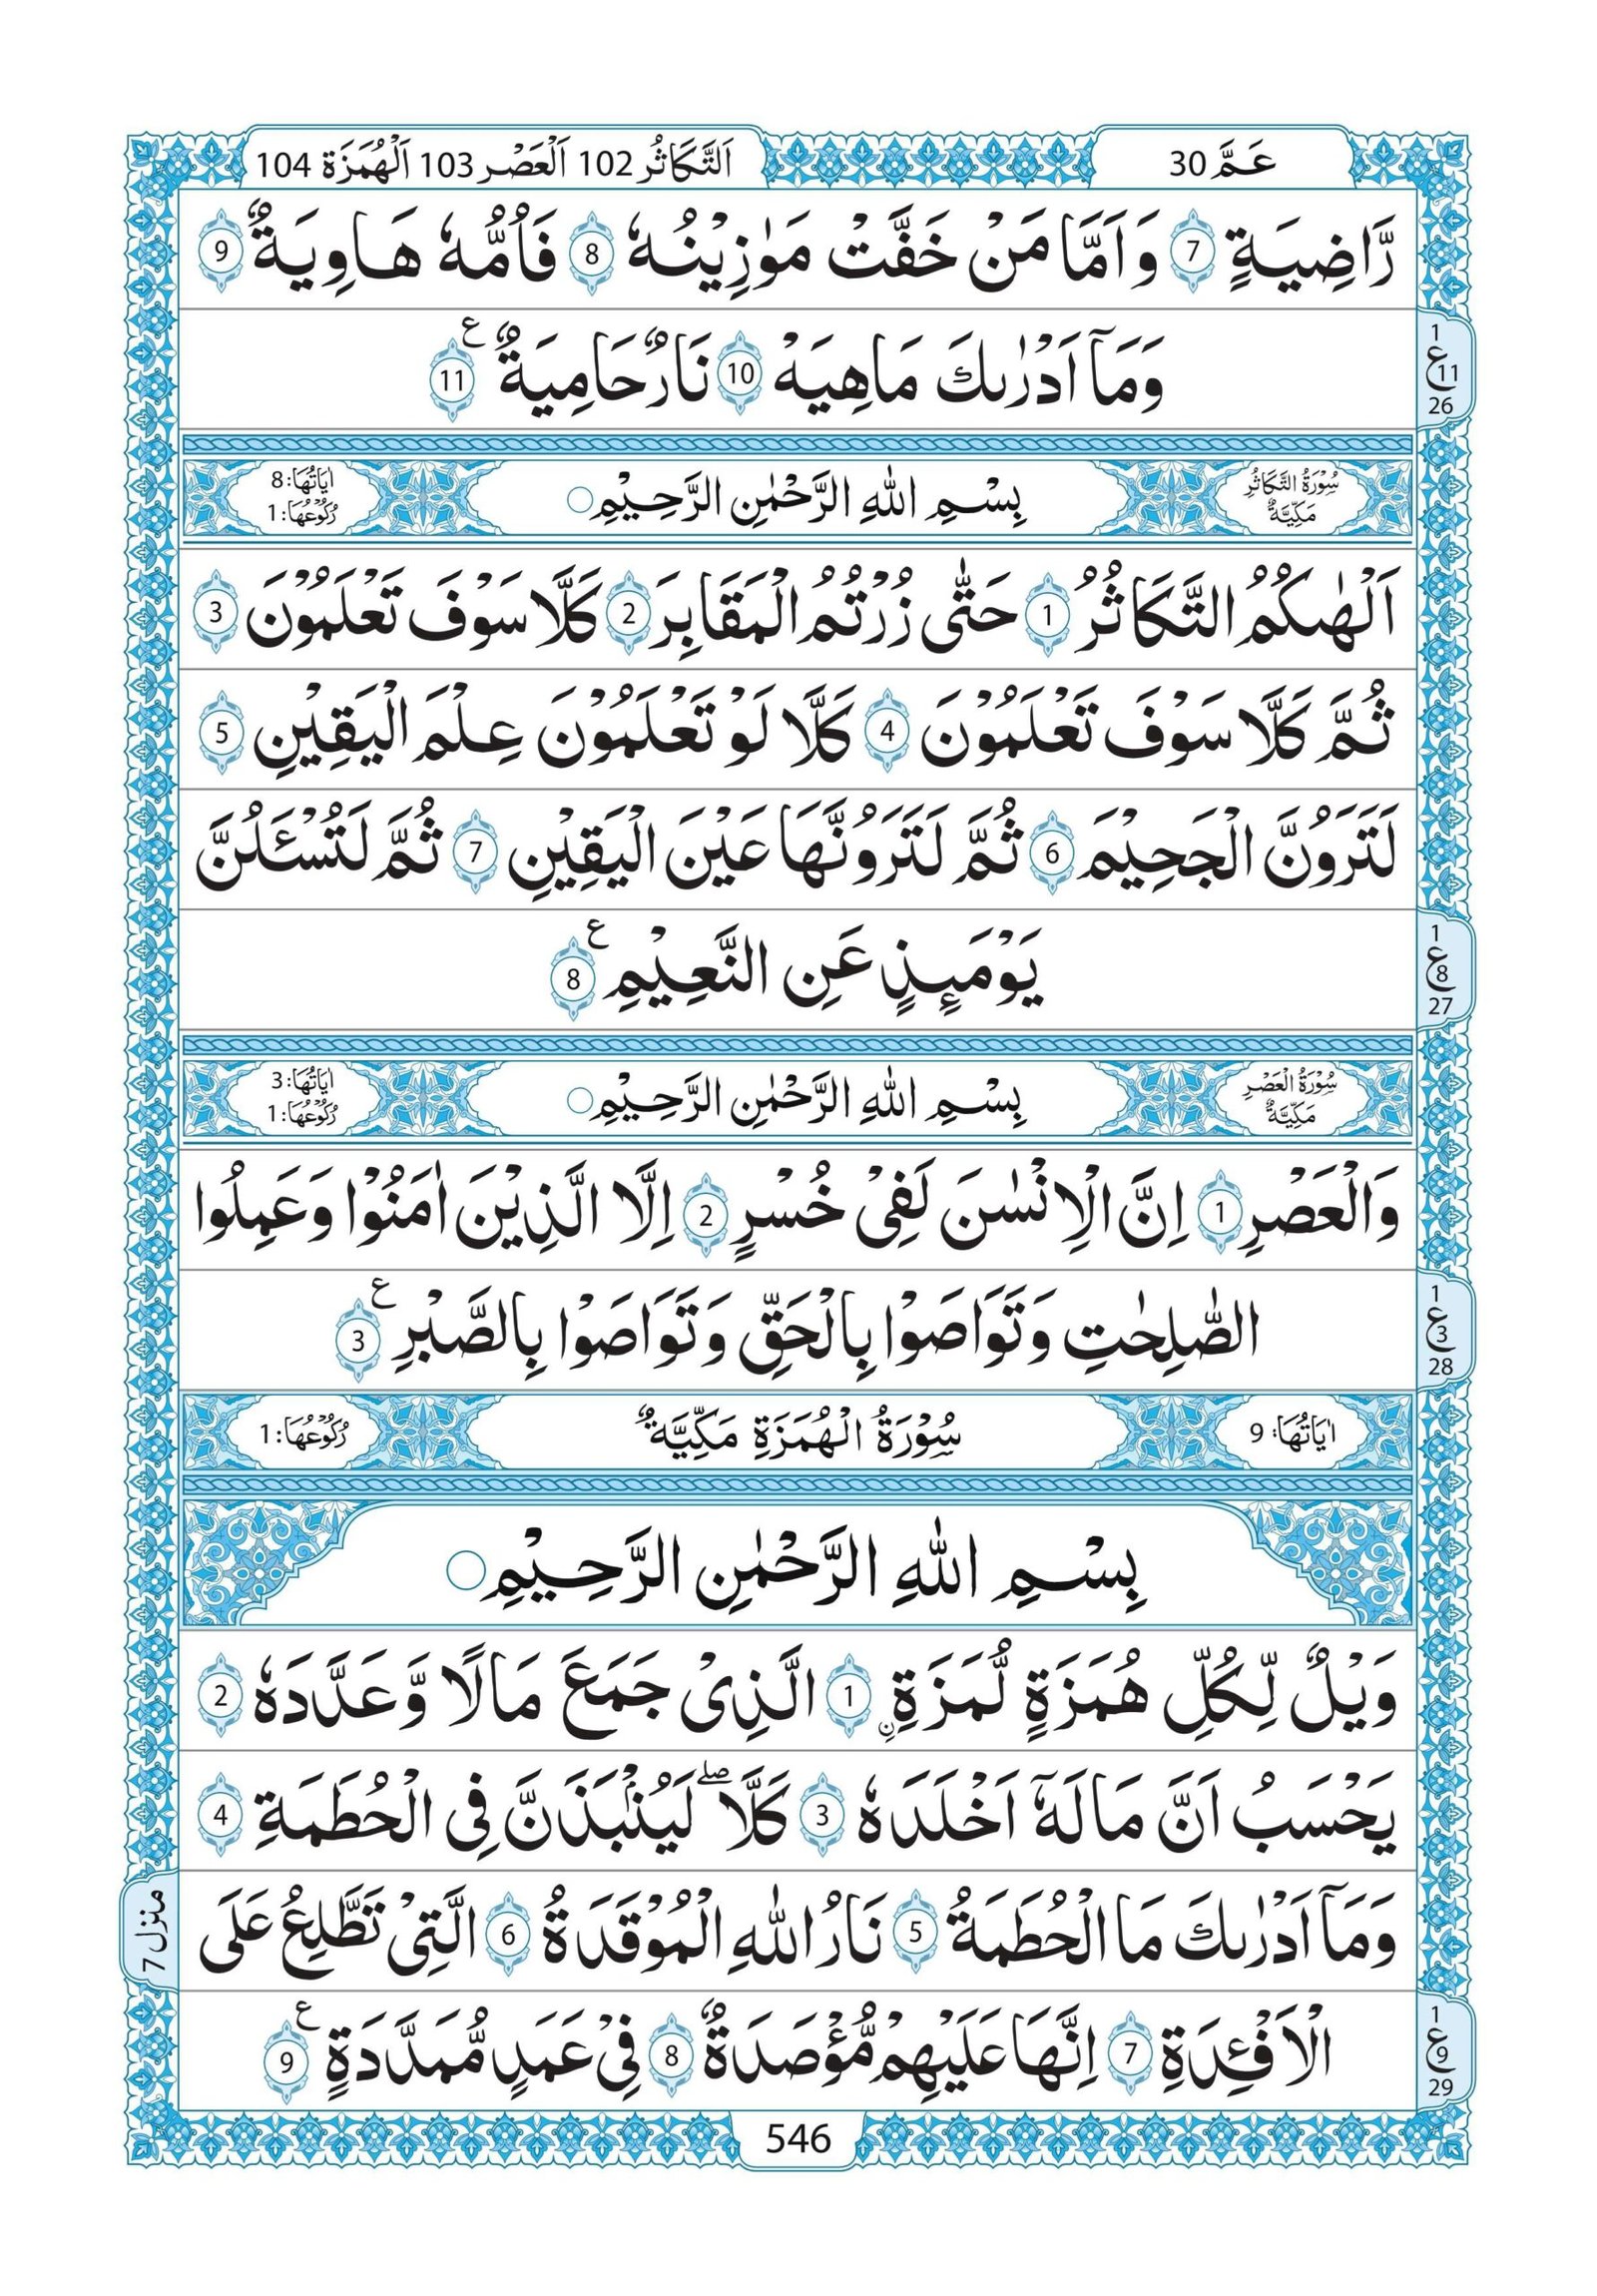 عَمَّ 30
اَلتَّكَاثُر 102 اَلْعَصْر 103 اَلْهُمَزَة 104
رَّاضِيَةٍ 7 وَاَمَّا مَنْ خَفَّتْ مَوٰزِيْنُهٗ 8 فَاُمُّهٗ هَاوِيَةٌ 9
وَمَاۤ اَدْرٰىكَ مَاهِيَهْ 10 نَارٌ حَامِيَةٌ ع 11
1
ع 11
26
سُوْرَةُ التَّكَاثُرِ مَكِّيَّةٌ
بِسْمِ اللّٰهِ الرَّحْمٰنِ الرَّحِيْمِ
اٰيَاتُهَا: 8
رُكُوْعُهَا: 1
اَلْهٰىكُمُ التَّكَاثُرُ 1 حَتّٰى زُرْتُمُ الْمَقَابِرَ 2 كَلَّا سَوْفَ تَعْلَمُوْنَ 3
ثُمَّ كَلَّا سَوْفَ تَعْلَمُوْنَ 4 كَلَّا لَوْ تَعْلَمُوْنَ عِلْمَ الْيَقِيْنِ 5
لَتَرَوُنَّ الْجَحِيْمَ 6 ثُمَّ لَتَرَوُنَّهَا عَيْنَ الْيَقِيْنِ 7 ثُمَّ لَتُسْـَٔلُنَّ
يَوْمَىِٕذٍ عَنِ النَّعِيْمِ ع 8
1
ع 8
27
سُوْرَةُ الْعَصْرِ مَكِّيَّةٌ
بِسْمِ اللّٰهِ الرَّحْمٰنِ الرَّحِيْمِ
اٰيَاتُهَا: 3
رُكُوْعُهَا: 1
وَالْعَصْرِ 1 اِنَّ الْاِنْسٰنَ لَفِىْ خُسْرٍ 2 اِلَّا الَّذِيْنَ اٰمَنُوْا وَعَمِلُوا
الصّٰلِحٰتِ وَتَوَاصَوْا بِالْحَقِّ وَتَوَاصَوْا بِالصَّبْرِ ع 3
1
ع 3
28
اٰيَاتُهَا: 9
سُوْرَةُ الْهُمَزَةِ مَكِّيَّةٌ
رُكُوْعُهَا: 1
بِسْمِ اللّٰهِ الرَّحْمٰنِ الرَّحِيْمِ
وَيْلٌ لِّكُلِّ هُمَزَةٍ لُّمَزَةِ ۨ 1 الَّذِىْ جَمَعَ مَالًا وَّعَدَّدَهٗ 2
يَحْسَبُ اَنَّ مَالَهٗۤ اَخْلَدَهٗ 3 كَلَّا ۖ لَيُنْۢبَذَنَّ فِى الْحُطَمَةِ 4
وَمَاۤ اَدْرٰىكَ مَا الْحُطَمَةُ 5 نَارُ اللّٰهِ الْمُوْقَدَةُ 6 الَّتِىْ تَطَّلِعُ عَلَى
منزل 7
الْاَفْـِٕدَةِ 7 اِنَّهَا عَلَيْهِمْ مُّؤْصَدَةٌ 8 فِىْ عَمَدٍ مُّمَدَّدَةٍ ع 9
1
ع 9
29
546